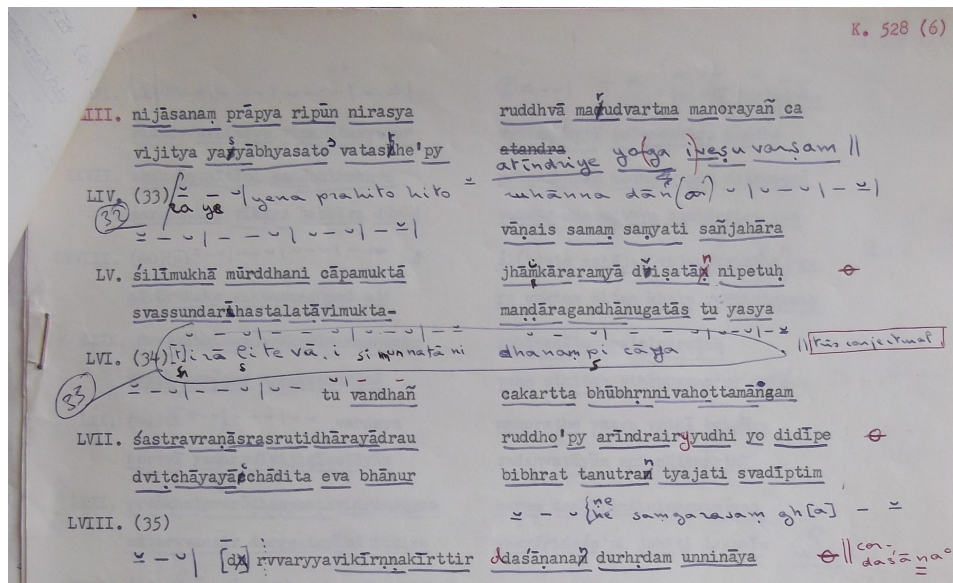 K. 528 (6)
LIII. nijāsanaṃ prāpya ripūn nirasya ruddhvā marudvartma manorayañ ca
vijitya yasyābhyasato vatasthe'py atandra
atīndriye yoga iveṣu varṣam ||
LIV. (33) yena prahito hito
32
vāṇais samaṃ saṃyati sañjahāra
LV. śilīmukhā mūrddhani cāpamuktā jhāṃkāraramyā dviṣatān nipetuḥ
svassundarīhastalatāvimukta- mandāragandhānugatās tu yasya
LVI. (34) dhanam pi cāya || this conjectural
33
tu vandhañ cakartta bhūbhṛnnivahottamāṅgam
LVII. śastravraṇāsrasrutidhārayādrau ruddho'py arīndrair yyudhi yo didīpe
dviṭchāyayācchādita eva bhānur bibhrat tanutran tyajati svadīptim
LVIII. (35) saṃgarasaṃ gh[a]
rvvaryyavikīrṇṇakīrttir daśāṇana durhṛdam unnināya || con- daśānaº